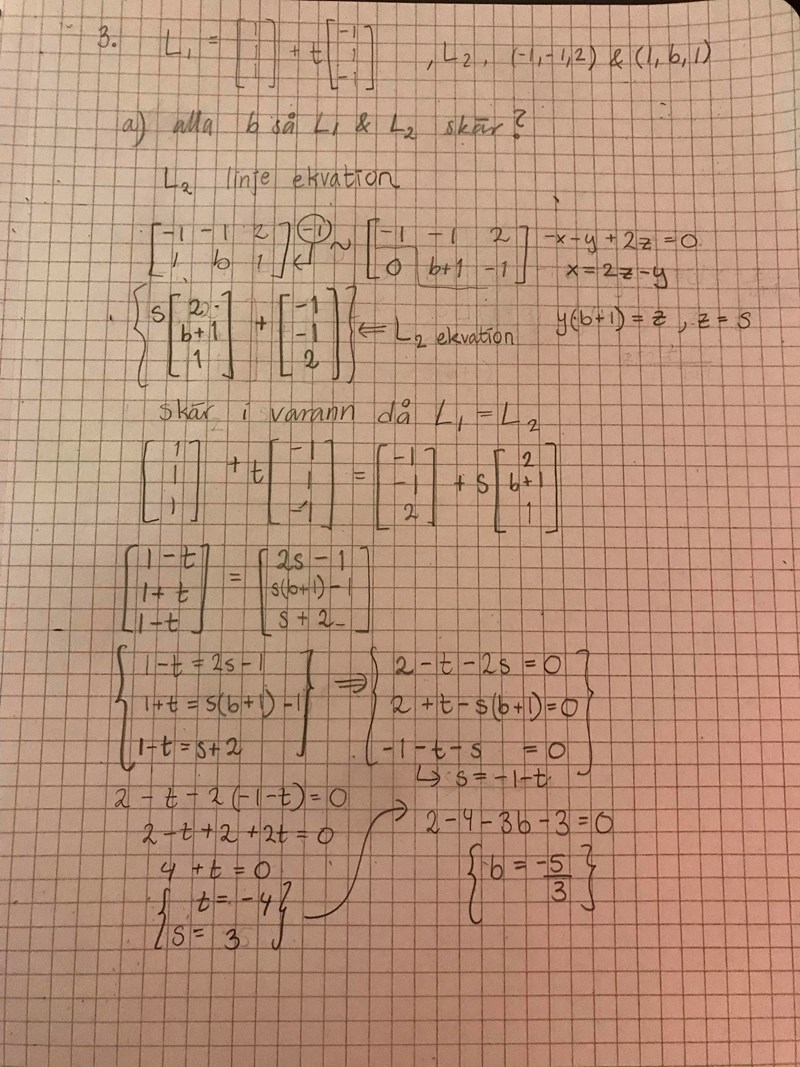 3. L₁ = [1 1 1] + t[-1 1 -1] , L₂ , (-1,-1,2) & (1,b,1)
a) alla b så L₁ & L₂ skär?
L₂ linje ekvation
[-1 -1 2; 1 b 1] (-1) ~ [-1 -1 2; 0 b+1 -1] -x-y+2z=0
x=2z-y
{s[2 b+1 1] + [-1 -1 2]} ⇐ L₂ ekvation y(b+1)=z, z=s
skär i varann då L₁ = L₂
[1 1 1] + t[-1 1 -1] = [-1 -1 2] + s[2 b+1 1]
[1-t 1+t 1-t] = [2s-1 s(b+1)-1 s+2]
{1-t=2s-1 ⇒ {2-t-2s=0
1+t=s(b+1)-1} 2+t-s(b+1)=0
1-t=s+2 -1-t-s=0}
↳ s=-1-t
2-t-2(-1-t)=0
2-t+2+2t=0
4+t=0
{t=-4
s=3}
2-4-3b-3=0
{b=-5/3}